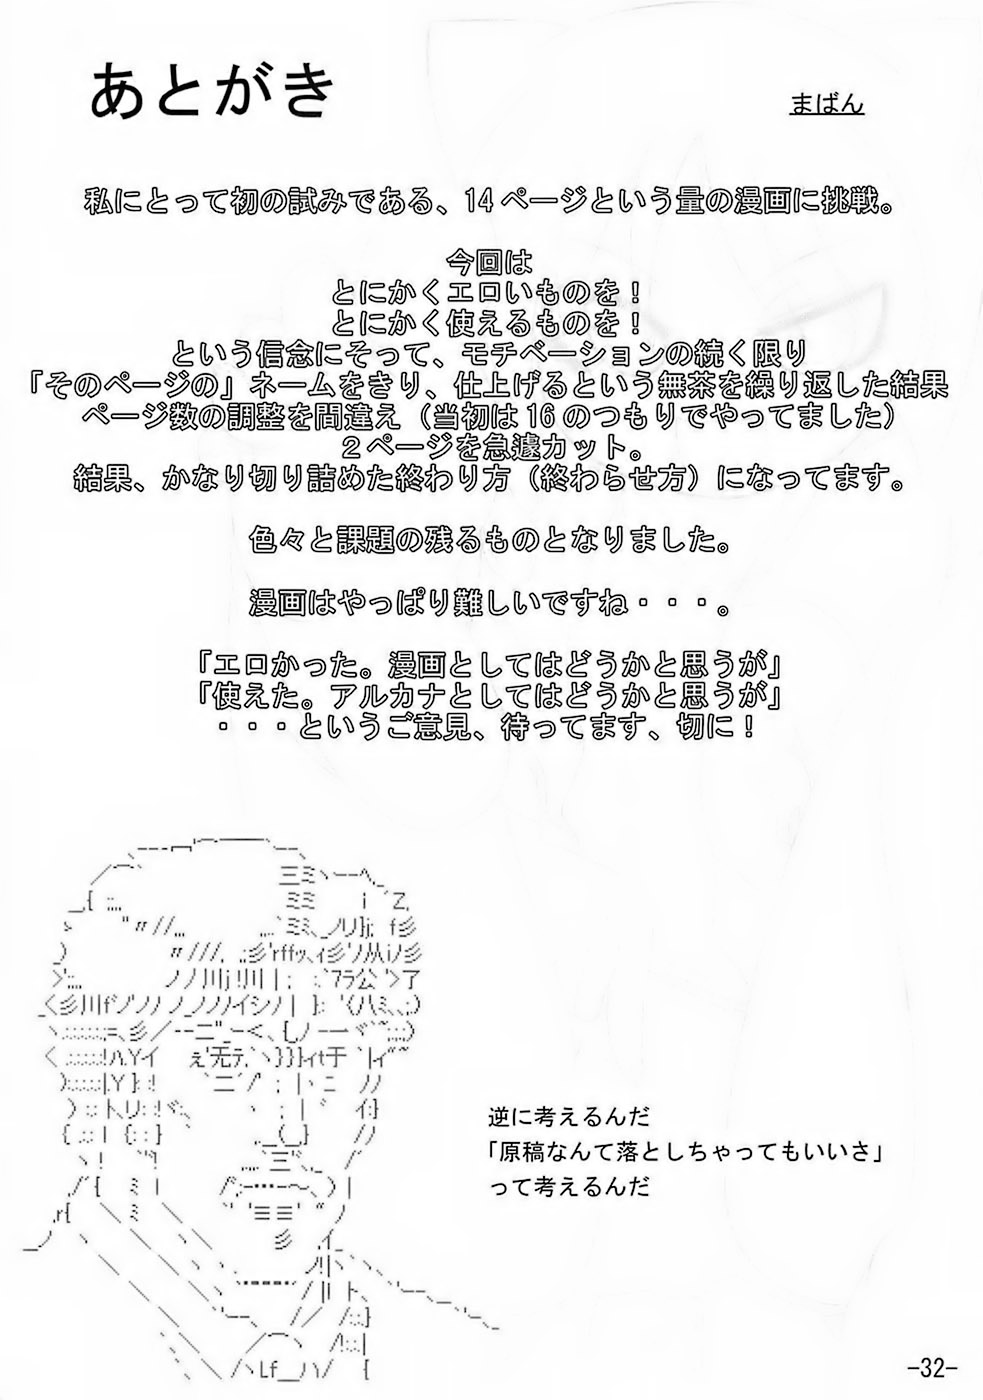 あとがき
まばん
私にとって初の試みである、14ページという量の漫画に挑戦。
今回は
とにかくエロいものを！
とにかく使えるものを！
という信念にそって、モチベーションの続く限り
「そのページの」ネームをきり、仕上げるという無茶を繰り返した結果
ページ数の調整を間違え（当初は16のつもりでやってました）
２ページを急遽カット。
結果、かなり切り詰めた終わり方（終わらせ方）になってます。
色々と課題の残るものとなりました。
漫画はやっぱり難しいですね・・・。
「エロかった。漫画としてはどうかと思うが」
「使えた。アルカナとしてはどうかと思うが」
・・・というご意見、待ってます、切に！
逆に考えるんだ
「原稿なんて落としちゃってもいいさ」
って考えるんだ
-32-